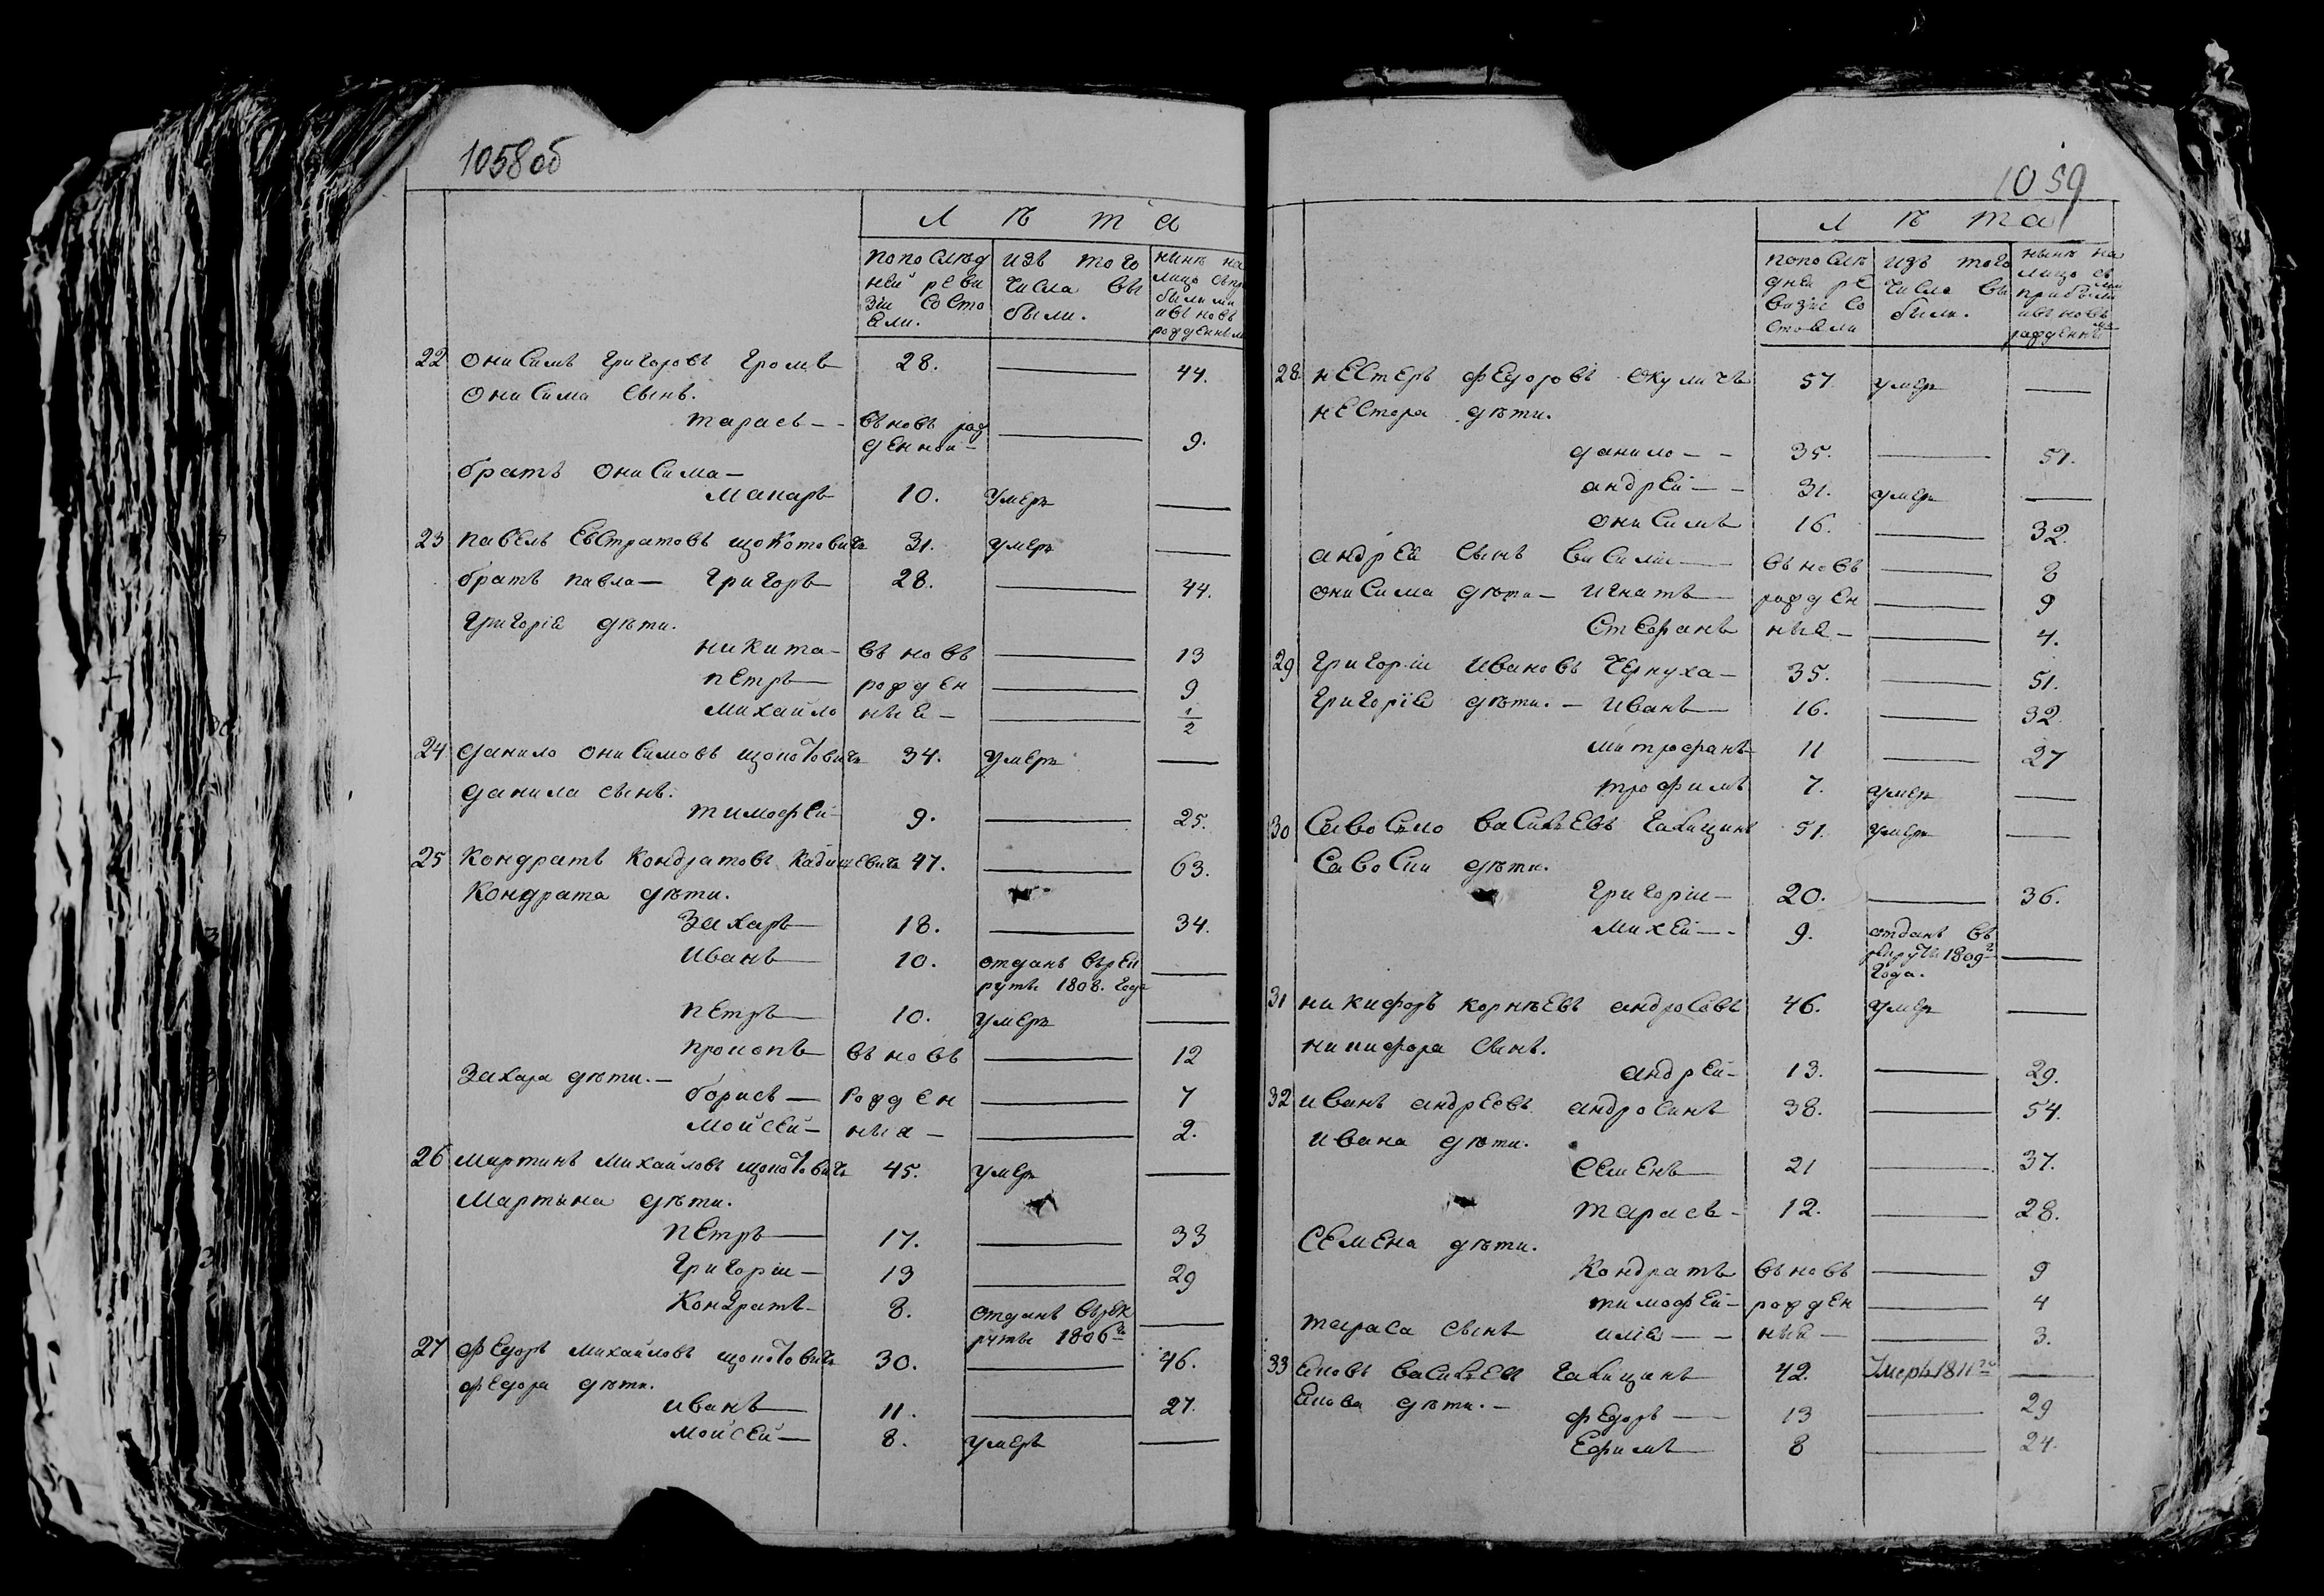 1058 об
Л ѣ т а
по послѣд
ней реви
зіи состо
яли.
изъ того
числа вы
были.
нынѣ на
лицо съ при
былыми
и вновь
рожденными
22 Онисимъ Григоровъ Громъ 28. — 44.
Онисима сынъ.
Тарасъ — вновь рож
денной — — 9.
братъ Онисима —
Макаръ 10. умеръ —
23 Павелъ Евстратовъ Щокотовичъ 31. умеръ —
братъ Павла — Григоръ 28. — 44.
Григорія дѣти.
Никита — вновь — 13
Петръ — рожден — 9
Михайло ныя — — 1/2
24 Данило Онисимовъ Щокотовичъ 34. умеръ —
Данила сынъ.
Тимофей — 9. — 25.
25 Кондратъ Кондратовъ 47. — 63.
Кондрата дѣти.
Захаръ — 18. — 34.
Иванъ — 10. отданъ въ рек
руты 1808. года —
Петръ — 10. умеръ —
Прокопъ — вновь — 12
Захара дѣти. —
Борисъ — рожден — 7
Мойсей — ныя — — 2.
26 Мартинъ Михайловъ Щокотовичъ 45. умеръ —
Мартына дѣти.
Петръ — 17. — 33
Григорій — 13 — 29
Кондратъ — 8. отданъ въ рек
руты 1806го —
27 Федоръ Михайловъ Щокотовичъ 30. — 46.
Федора дѣти.
Иванъ — 11. — 27.
Мойсей — 8. умеръ —
1059
Л ѣ т а
по послѣ
дней ре
визіи со
стояли
изъ того
числа вы
были.
нынѣ на
лицо съ
прибылыми
и вновь
рожденными
28 Нестеръ Федоровъ Окуличъ 57. умеръ —
Нестора дѣти.
Данило — — 35. — 51.
Андрей — — 31. умеръ —
Онисимъ 16. — 32.
Андрея сынъ Василій — вновь — 8
Онисима дѣти — Игнатъ — рожден — 9
Стефанъ ныя — — 4.
29 Григорій Ивановъ Чернуха — 35. — 51.
Григорія дѣти. — Иванъ — 16. — 32.
Митрофанъ — 11 — 27
Трофимъ 7. умеръ —
30 Васильевъ 51. умеръ —
дѣти.
Григорій — 20. — 36.
Михей — 9. отданъ въ
рекруты 1809го —
года.
31 Никифоръ Корнѣевъ Андросовъ 46. умеръ —
Никифора сынъ.
Андрей — 13. — 29.
32 Иванъ Андреевъ Андросинъ 38. — 54.
Ивана дѣти.
Семенъ — 21 — 37.
Тарасъ — 12. — 28.
Семена дѣти.
Кондратъ вновь — 9
Тимофей — рожден — 4
Тараса сынъ Илія — — ныя — — 3.
33 Яковъ Васильевъ 42. Умеръ 1811го —
Якова дѣти. —
Федоръ — 13 — 29
Ефимъ — 8 — 24.